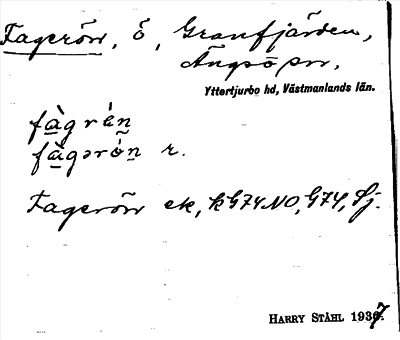 Fagerön, ö, Granfjärden,
Ängsö sn,
Yttertjurbo hd, Västmanlands län.
fàgrén
fàgərón r.
Fagerön ek, kG74NO, G74, Sj.
HARRY STÅHL 1937.